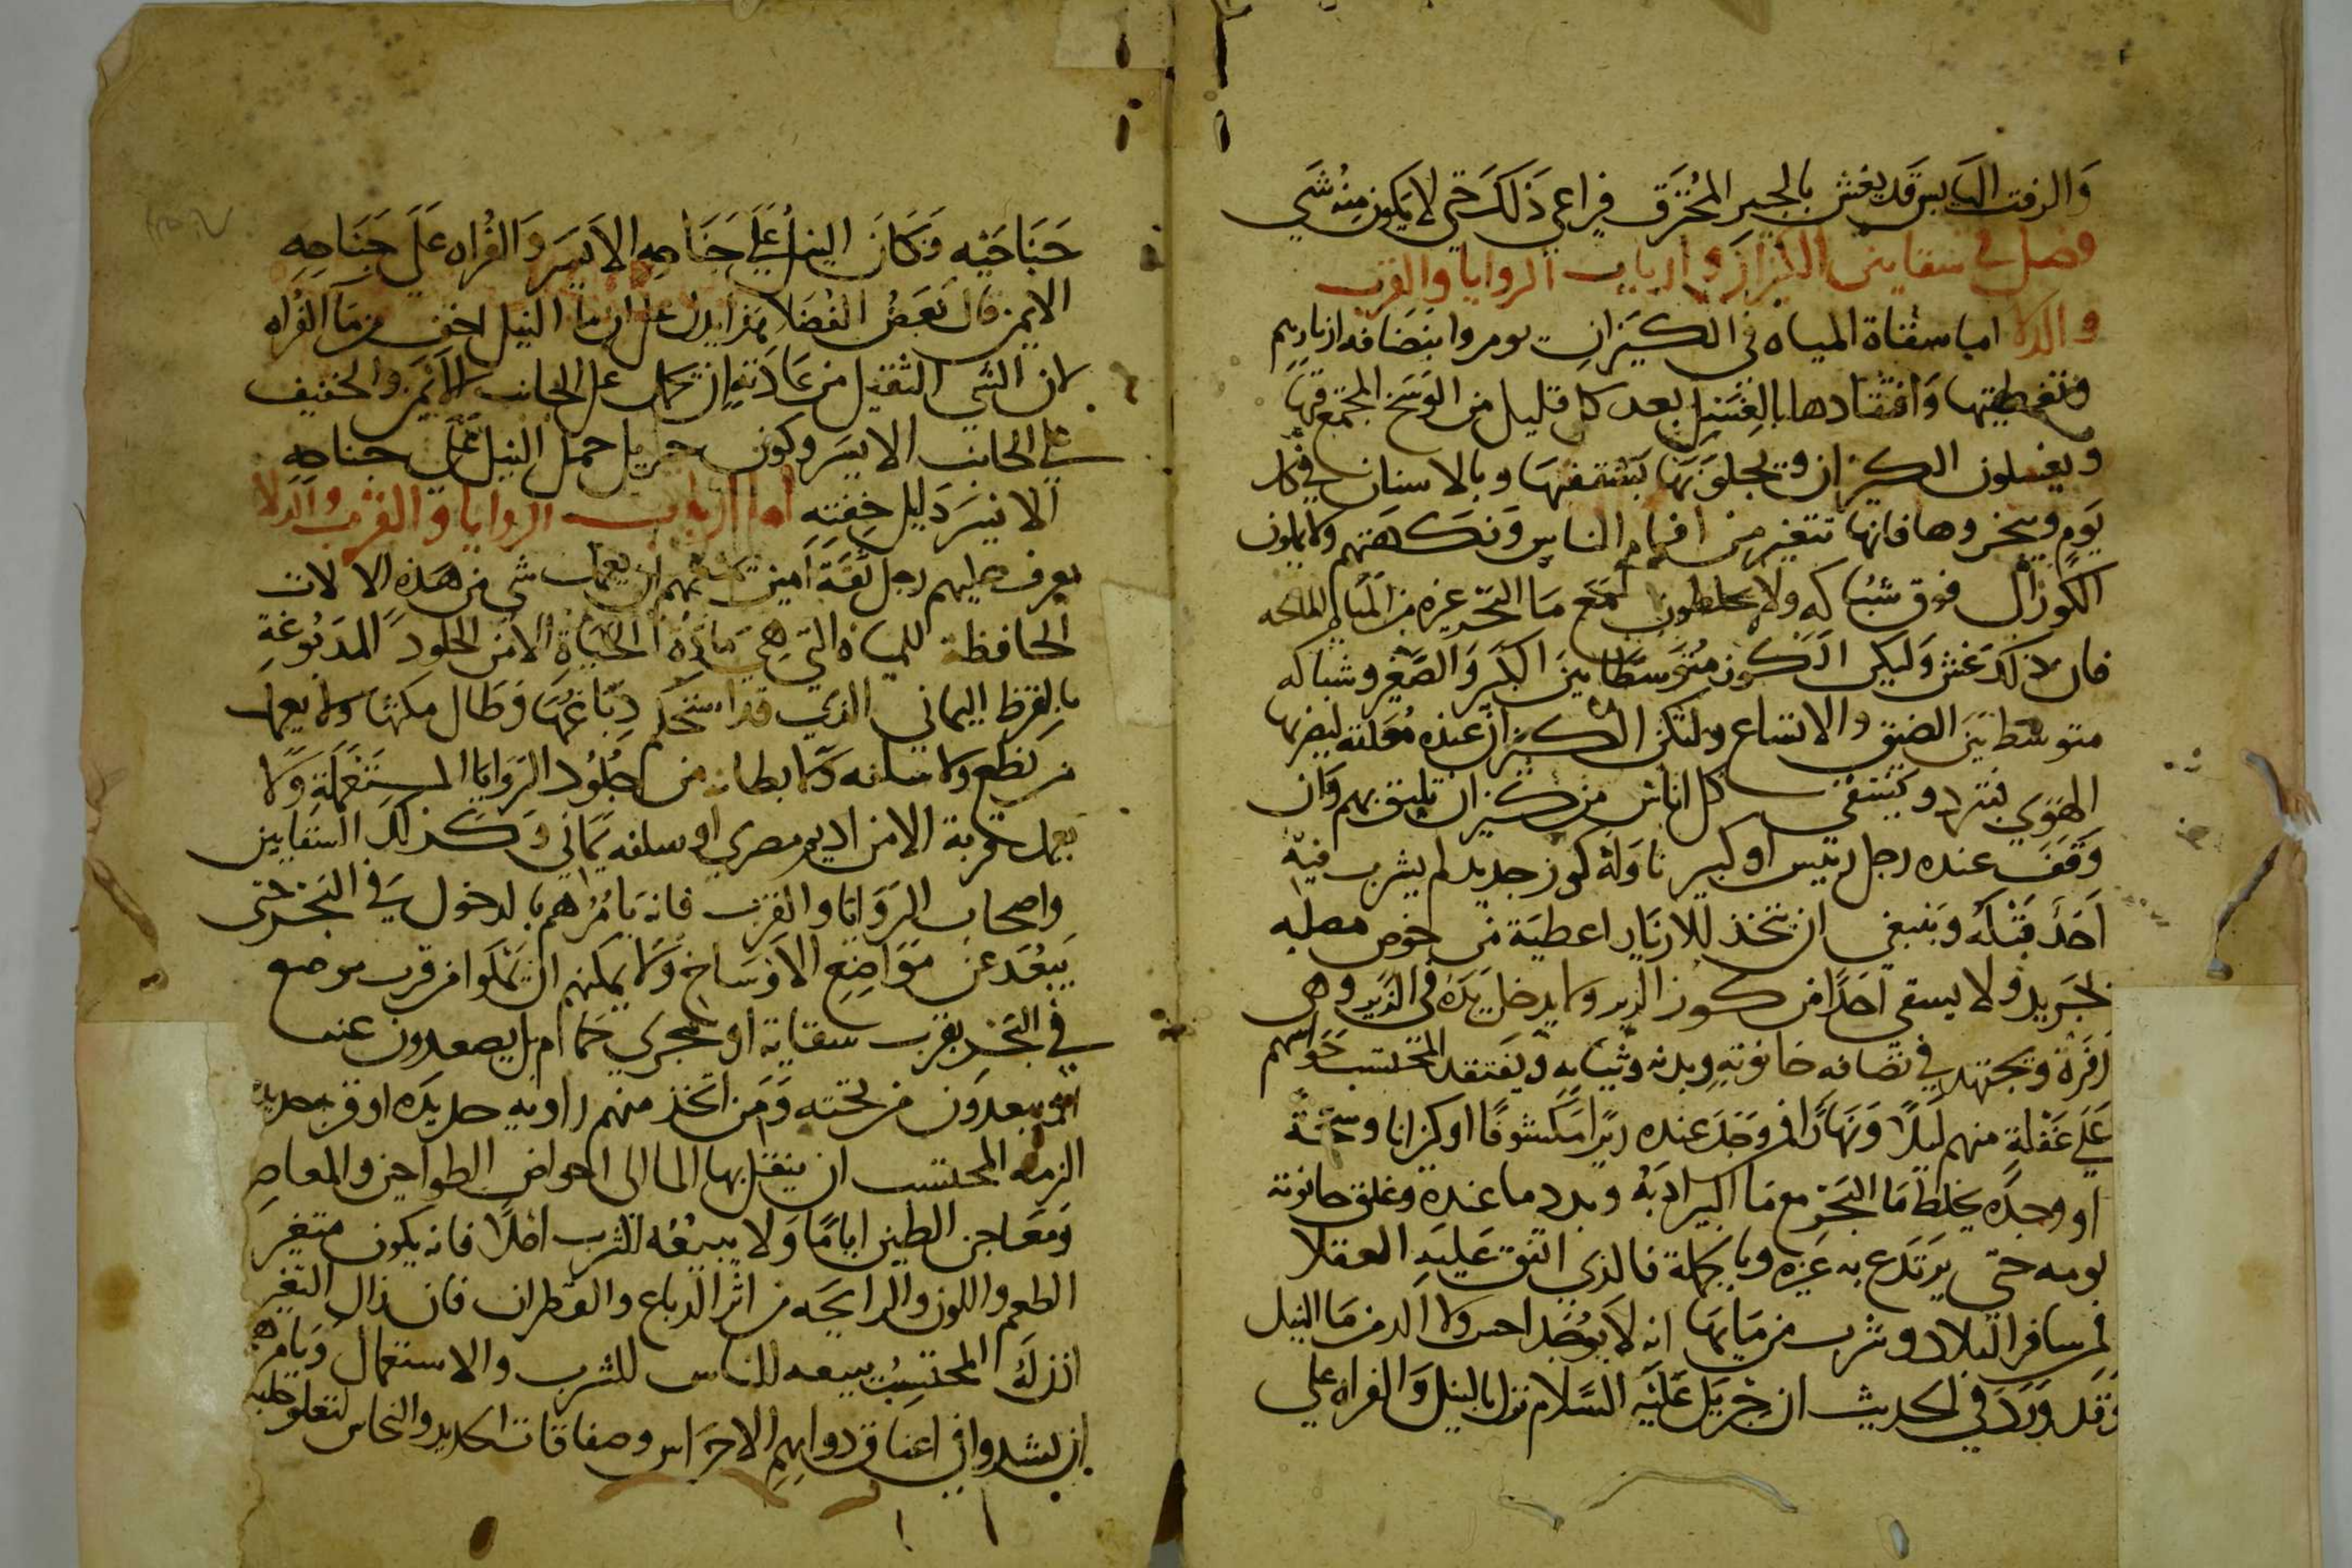 والزفت اليابس قد يغش بالجير المحترق فيراعى ذلك حتى لا يكون منه شي
فصل في سقايين الكيزان وارباب الروايا والقرب
والدلا اما سقاة المياه في الكيزان يومروا بنضافه ازيارهم
وتغطيتها وافتقادها بالغسل بعد كل قليل من الوسخ المجتمع فيها
ويغسلون الكيزان ويجلونها بشقفها وبالاشنان في كل
يوم ويبخروها فانها تتغير من افمام الناس ونكهتهم ولا يملون
الكوز ال فوق شباكه ولا يخلطون مع ما البحر غيره من المياه المالحه
فان ذلك غش وليكن الكوز متوسطا بين الكبر والصغر وشباكه
متوسط بين الضيق والاتساع ولتكن الكيزان عنده معلقه ليضربها
الهوي فتبرد ويسقى كل اناس من كيزان تليق بهم وان
وقف عنده رجل رييس او كبير ناوله كوز جديد لم يشرب فيه
احد قبله وينبغي ان يتخذ للازيار اعطية من خوص مصلبه
بجريد ولا يسقي احدا من كوز الزير ولا يدخل يده في الزير وهي
زفرة ويجتهد في نضافه حانوته وبدنه وثيابه ويفتقد المحتسب حواسهم
على غفلة منهم ليلا ونهارا فمن وجد عنده زيرا مكشوفا او كيزانا وسخة
او وجده يخلط ما البحر مع ما البير ادبه وبدد ما عنده وغلق حانوته
يومه حتى يرتدع به غيره وبالجملة فالذي اتفق عليه العقلا
ممن سافر البلاد وشرب من مياهها انه لا يوجد احسن ولا الذ من ما النيل
وقد ورد في الحديث ان جبريل عليه السلام نزل بالنيل والفراه على
جناحيه فكان النيل على جناحه الايسر والفراه على جناحه
الايمن قال بعض الفضلا فهذا يدل على ان ما النيل اخف من ما الفراه
لان الشي الثقيل من عادته ان يحمل على الجانب الايمن والخفيف
على الجانب الايسر وكون جبريل حمل النيل على جناحه
الايسر دليل خفته اما ارباب الروايا والقرب والدلا
يعرف عليهم رجل ثقة امين يمنعهم ان يعمل شي من هذه الالات
الحافظة للمياه التي هي مادة الحياة الا من الجلود المدبوغة
بالقرظ اليماني الذي قد استحكم دباغها وطال مكثها ولا يعمل
من نطع ولا سلفه ولا بطانه من جلود الروايا المستعملة ولا
يعمل قربة الا من اديم مصري او سلفه يماني وكذلك السقايين
واصحاب الروايا والقرب فانه يامرهم بالدخول في البحر حتى
يبعد عن مواضع الاوساخ ولا يمكنهم ان يملوا من قرب موضع
في البحر بقرب سقاية او مجرى حمام بل يصعدون عنه
او يبعدون من تحته ومن اتخذ منهم راويه جديده او قربه جديده
الزمه المحتسب ان ينقل بها الما الى احواض الطواحين والمعاصر
ومعاجن الطين اياما ولا يبيعه للشرب اصلا فانه يكون متغير
الطعم واللون والرايحه من اثر الدباغ والقطران فان زال التغير
اذن له المحتسب ببيعه للناس للشرب والاستعمال ويامرهم
ان يشدوا في اعناق دوابهم الاجراس وصفاقات الحديد والنحاس لتعلو جلبه